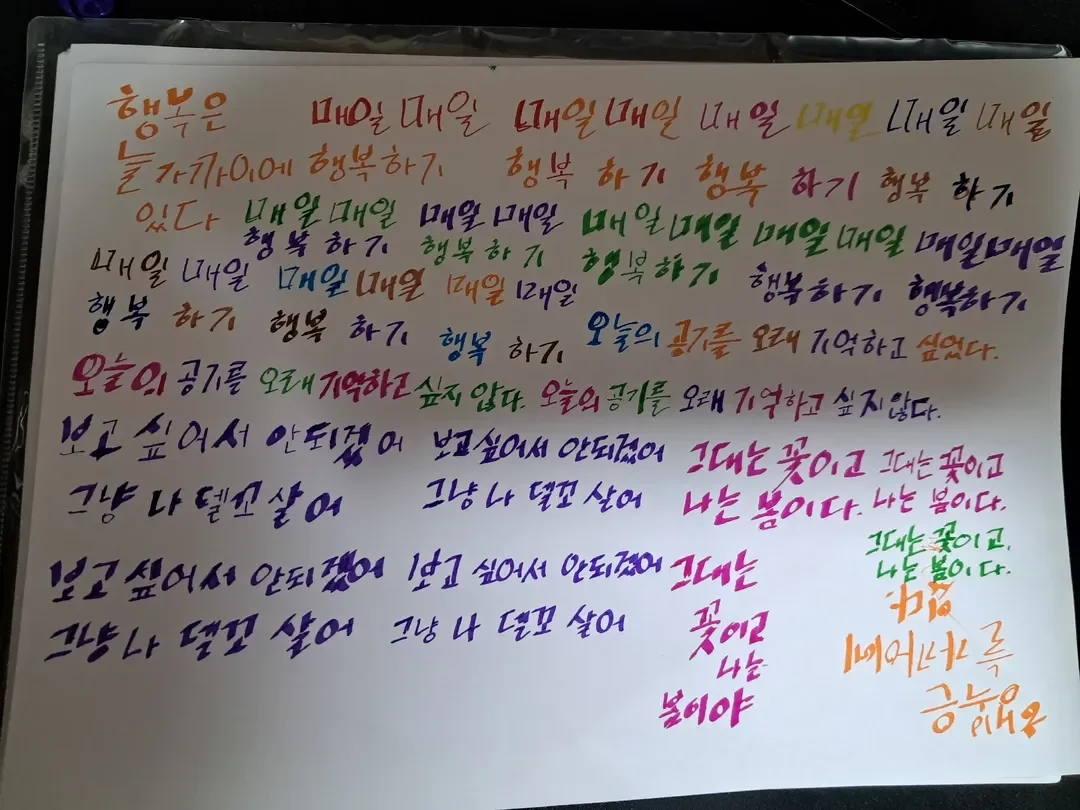 행복은 매일 매일 매일 매일 매일 매일 매일 매일
늘 가까이에 행복하기 행복 하기 행복 하기 행복 하기
있다 매일 매일 매일 매일 매일 매일 매일 매일 매일매일
행복 하기 행복 하기 행복하기 행복하기 행복하기
매일 매일 매일 매일 매일 매일
행복 하기 행복 하기 행복 하기 오늘의 공기를 오래 기억하고 싶었다.
오늘의 공기를 오래 기억하고 싶지 않다. 오늘의 공기를 오래 기억하고 싶지 않다.
보고 싶어서 안되겠어 보고싶어서 안되겠어 그대는 꽃이고 그대는 꽃이고
그냥 나 델꼬 살어 그냥 나 델꼬 살어 나는 봄이다. 나는 봄이다.
그대는 꽃이고,
나는 봄이다.
보고 싶어서 안되겠어 보고 싶어서 안되겠어 그대는
그냥 나 델꼬 살어 그냥 나 델꼬 살어 꽃이고
나는
봄이야
행복은
늘 가까이에
있다.